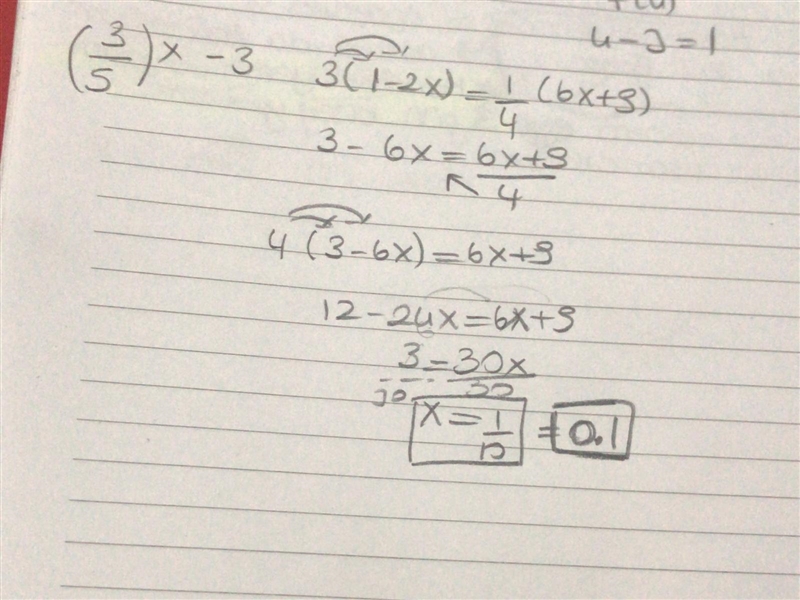 4-3=1
(3/5)x - 3
3(1-2x) = 1/4 (6x+9)
3 - 6x = 6x+9/4
4(3-6x) = 6x+9
12 - 24x = 6x+9
3 = 30x
30 30
x = 1/10 = 0.1